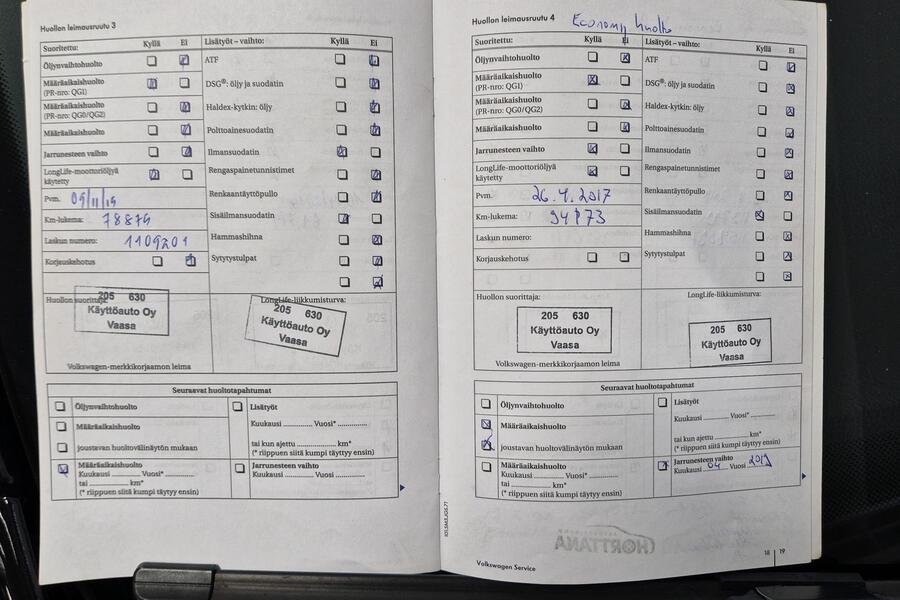 Huollon leimausruutu 3
Suoritettu: Kyllä Ei
Öljynvaihtohuolto
Määräaikaishuolto
(PR-nro: QG1)
Määräaikaishuolto
(PR-nro: QG0/QG2)
Määräaikaishuolto
Jarrunesteen vaihto
LongLife-moottoriöljyä
käytetty
Pvm.
Km-lukema: 78879
Laskun numero: 1109201
Korjauskehotus
Lisätyöt – vaihto: Kyllä Ei
ATF
DSG®: öljy ja suodatin
Haldex-kytkin: öljy
Polttoainesuodatin
Ilmansuodatin
Rengaspainetunnistimet
Renkaantäyttöpullo
Sisäilmansuodatin
Hammashihna
Sytytystulpat
Huollon suorittaja:
205 630
Käyttöauto Oy
Vaasa
LongLife-liikkumisturva:
205 630
Käyttöauto Oy
Vaasa
Volkswagen-merkkikorjaamon leima
Seuraavat huoltotapahtumat
Öljynvaihtohuolto
Määräaikaishuolto
joustavan huoltovälinäytön mukaan
Määräaikaishuolto
Kuukausi ............ Vuosi* ............
tai ............ km*
(* riippuen siitä kumpi täytyy ensin)
Lisätyöt
Kuukausi ............ Vuosi* ............
tai kun ajettu ............ km*
(* riippuen siitä kumpi täytyy ensin)
Jarrunesteen vaihto
Kuukausi ............ Vuosi ............
Huollon leimausruutu 4
Economy huolto
Suoritettu: Kyllä Ei
Öljynvaihtohuolto
Määräaikaishuolto
(PR-nro: QG1)
Määräaikaishuolto
(PR-nro: QG0/QG2)
Määräaikaishuolto
Jarrunesteen vaihto
LongLife-moottoriöljyä
käytetty
Pvm. 26.4.2017
Km-lukema: 94173
Laskun numero:
Korjauskehotus
Lisätyöt – vaihto: Kyllä Ei
ATF
DSG®: öljy ja suodatin
Haldex-kytkin: öljy
Polttoainesuodatin
Ilmansuodatin
Rengaspainetunnistimet
Renkaantäyttöpullo
Sisäilmansuodatin
Hammashihna
Sytytystulpat
Huollon suorittaja:
205 630
Käyttöauto Oy
Vaasa
LongLife-liikkumisturva:
205 630
Käyttöauto Oy
Vaasa
Volkswagen-merkkikorjaamon leima
Seuraavat huoltotapahtumat
Öljynvaihtohuolto
Määräaikaishuolto
joustavan huoltovälinäytön mukaan
Määräaikaishuolto
Kuukausi ............ Vuosi* ............
tai ............ km*
(* riippuen siitä kumpi täytyy ensin)
Lisätyöt
Kuukausi ............ Vuosi* ............
tai kun ajettu ............ km*
(* riippuen siitä kumpi täytyy ensin)
Jarrunesteen vaihto
Kuukausi 04 Vuosi 2019
HORTTANA
Volkswagen Service
18 | 19